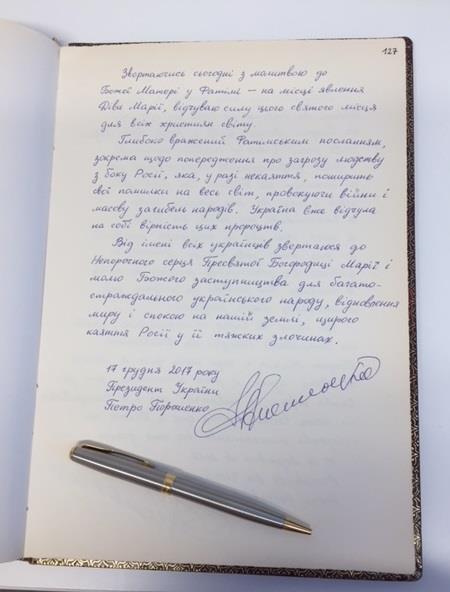 127
Звертаючись сьогодні з молитвою до
Божої Матері у Фатімі – на місці явлення
Діви Марії, відчуваю силу цього святого місця
для всіх християн світу.
Глибоко вражений Фатимським посланням,
зокрема щодо попередження про загрозу людству
з боку Росії, яка, у разі некаяття, поширить
свої помилки на весь світ, провокуючи війни і
масову загибель народів. Україна вже відчула
на собі вірність цих пророцтв.
Від імені всіх українців звертаюся до
Непорочного серця Пресвятої Богородиці Марії і
молю Божого заступництва для багато-
страждального українського народу, відновлення
миру і спокою на нашій землі, щирого
каяття Росії у її тяжких злочинах.
17 грудня 2017 року
Президент України
Петро Порошенко